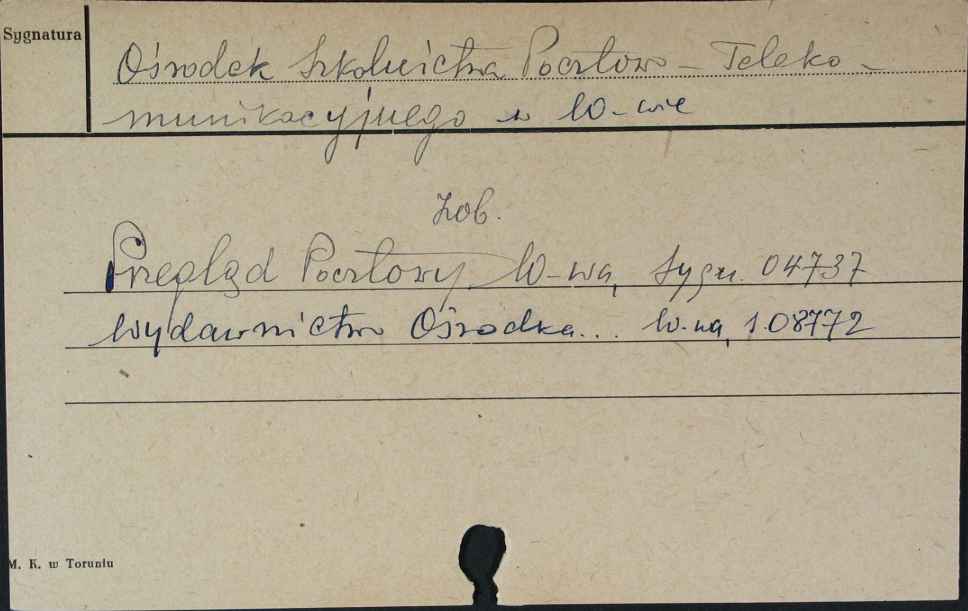 Sygnatura
Ośrodek Szkolnictwa Pocztowo - Teleko -
munikacyjnego w W-wie
Zob.
Przegląd Pocztowy W-wa, Sygn. 04737
Wydawnictwo Ośrodka... W-wa, 1.08772
M. K. w Toruniu